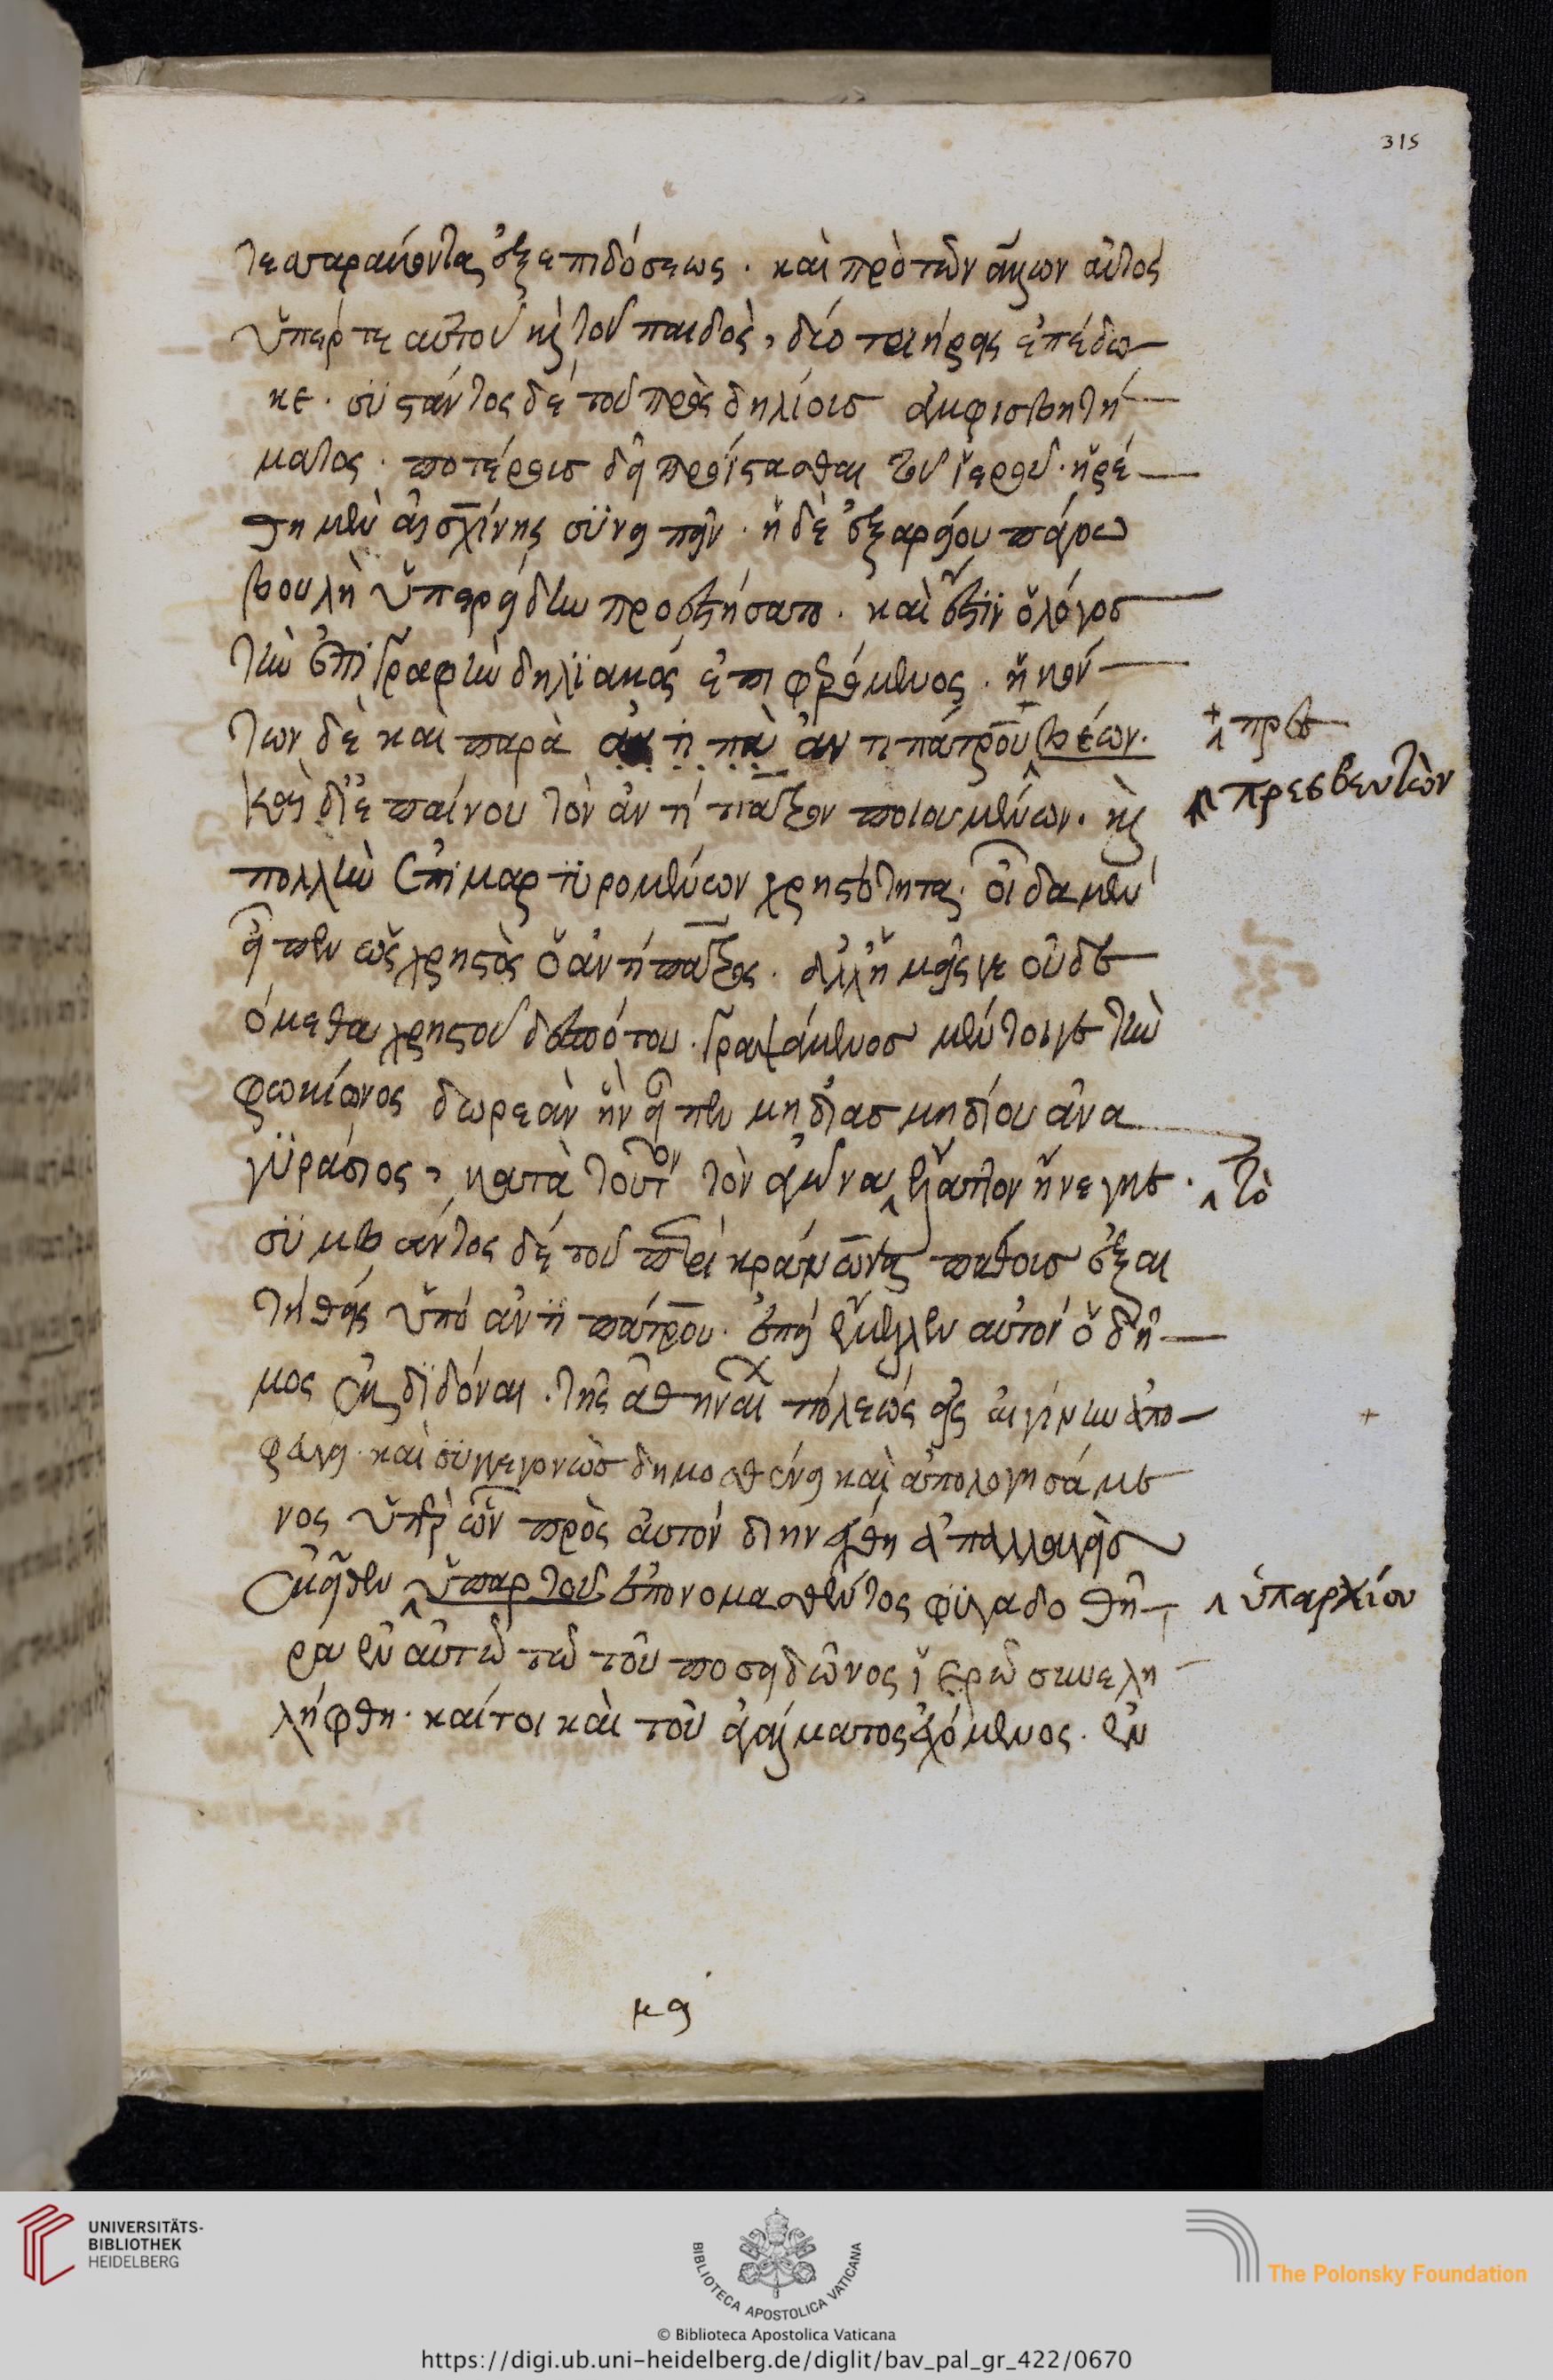 315
τεσσαράκοντα ἐξ ἐπιδόσεως · καὶ πρὸ τῶν ἄλλων αὐτὸς
ὑπέρ τε αὐτοῦ κ τοῦ παιδὸς, δύο τριήρεις ἐπέδω
κε · συστάντος δὲ τοῦ πρὸς δηλίοις ἀμφισβητή
ματος · ποτέρους δεῖ προΐστασθαι τοῦ ἱεροῦ · ἡρέ
θη μὲν αἰσχίνης συνειπεῖν · ἡ δὲ ἐξ ἀρείου πάγου
βουλὴ ὑπερείδην προεστήσατο · καὶ ἐστὶν ὁ λόγος
τὴν ἐπιγραφὴν δηλϊακὸς ἐπιφερόμενος · ἡκόν
των δὲ καὶ παρὰ ἀντιπάτρου βέων.
καὶ δι' ἐπαίνου τὸν ἀντίπατρον ποιουμένων · κ
πολλὴν ἐπιμαρτυρομένων χρηστότητα · οἶδα μὲν
εἶπεν ὡς χρηστὸς ὁ ἀντίπατρος · ἀλλ' ἡμεῖς γε οὐ δε
όμεθα χρηστοῦ δεσπότου · γραψάμενος μέντοιγε τὴν
φωκίωνος δωρεὰν ἣν εἶπεν μηδίας μηδίου ἀνα
γυράσιος, κατὰ τοῦτον τὸν ἀγῶνα ἔλαττον ἤνεγκε ·
συμβάντος δὲ τοῦ περὶ κράννωνα πάθους ἐξαι
τηθεὶς ὑπὸ ἀντιπάτρου · ἐπεὶ ἔμελλεν αὐτὸν ὁ δῆ
μος ἐκδιδόναι · τῆς ἀθηναίων πόλεως εἰς αἴγιναν ἀπο
φεύγει · καὶ συγγεγονὼς δημοσθένει καὶ ἀπολογησάμε
νος ὑπὲρ ὧν πρὸς αὐτὸν διηνέχθη ἀπαλλαγεὶς
ἐκεῖθεν ὑπαρ τοῦ ἐπονομασθέντος φυγαδοθή
ρα ἐν αὐτῷ τῷ τοῦ ποσειδῶνος ἱερῷ συνελη
λήφθη · καίτοι καὶ τοῦ ἀγάλματος ἐχόμενος · ἐν
πρε
πρεσβευτῶν
τὸ
ὑπαρχίου
κει
UNIVERSITÄTS-
BIBLIOTHEK
HEIDELBERG
BIBLIOTECA APOSTOLICA VATICANA
The Polonsky Foundation
© Biblioteca Apostolica Vaticana
https://digi.ub.uni-heidelberg.de/diglit/bav_pal_gr_422/0670